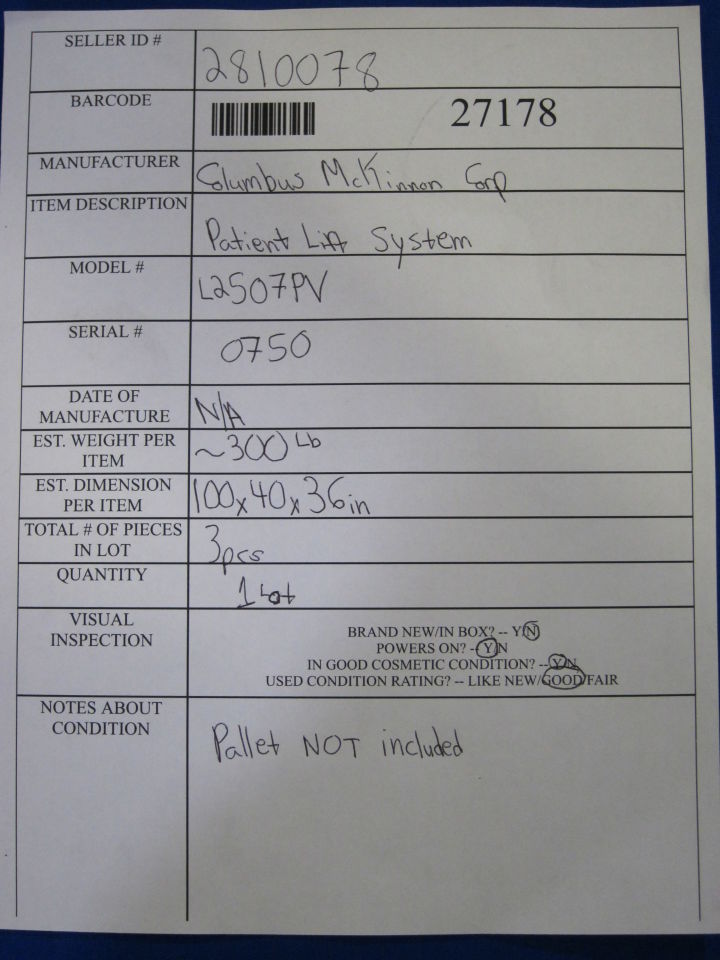 SELLER ID # 2810078
BARCODE 27178
MANUFACTURER Columbus McKinnon Corp
ITEM DESCRIPTION Patient Lift System
MODEL # L2507PV
SERIAL # 0750
DATE OF
MANUFACTURE N/A
EST. WEIGHT PER
ITEM ~300 Lb
EST. DIMENSION
PER ITEM 100x40x36in
TOTAL # OF PIECES
IN LOT 3pcs
QUANTITY 1 Lot
VISUAL
INSPECTION
BRAND NEW/IN BOX? -- Y/N
POWERS ON? -- Y/N
IN GOOD COSMETIC CONDITION? -- Y/N
USED CONDITION RATING? -- LIKE NEW/GOOD/FAIR
NOTES ABOUT
CONDITION
Pallet NOT included